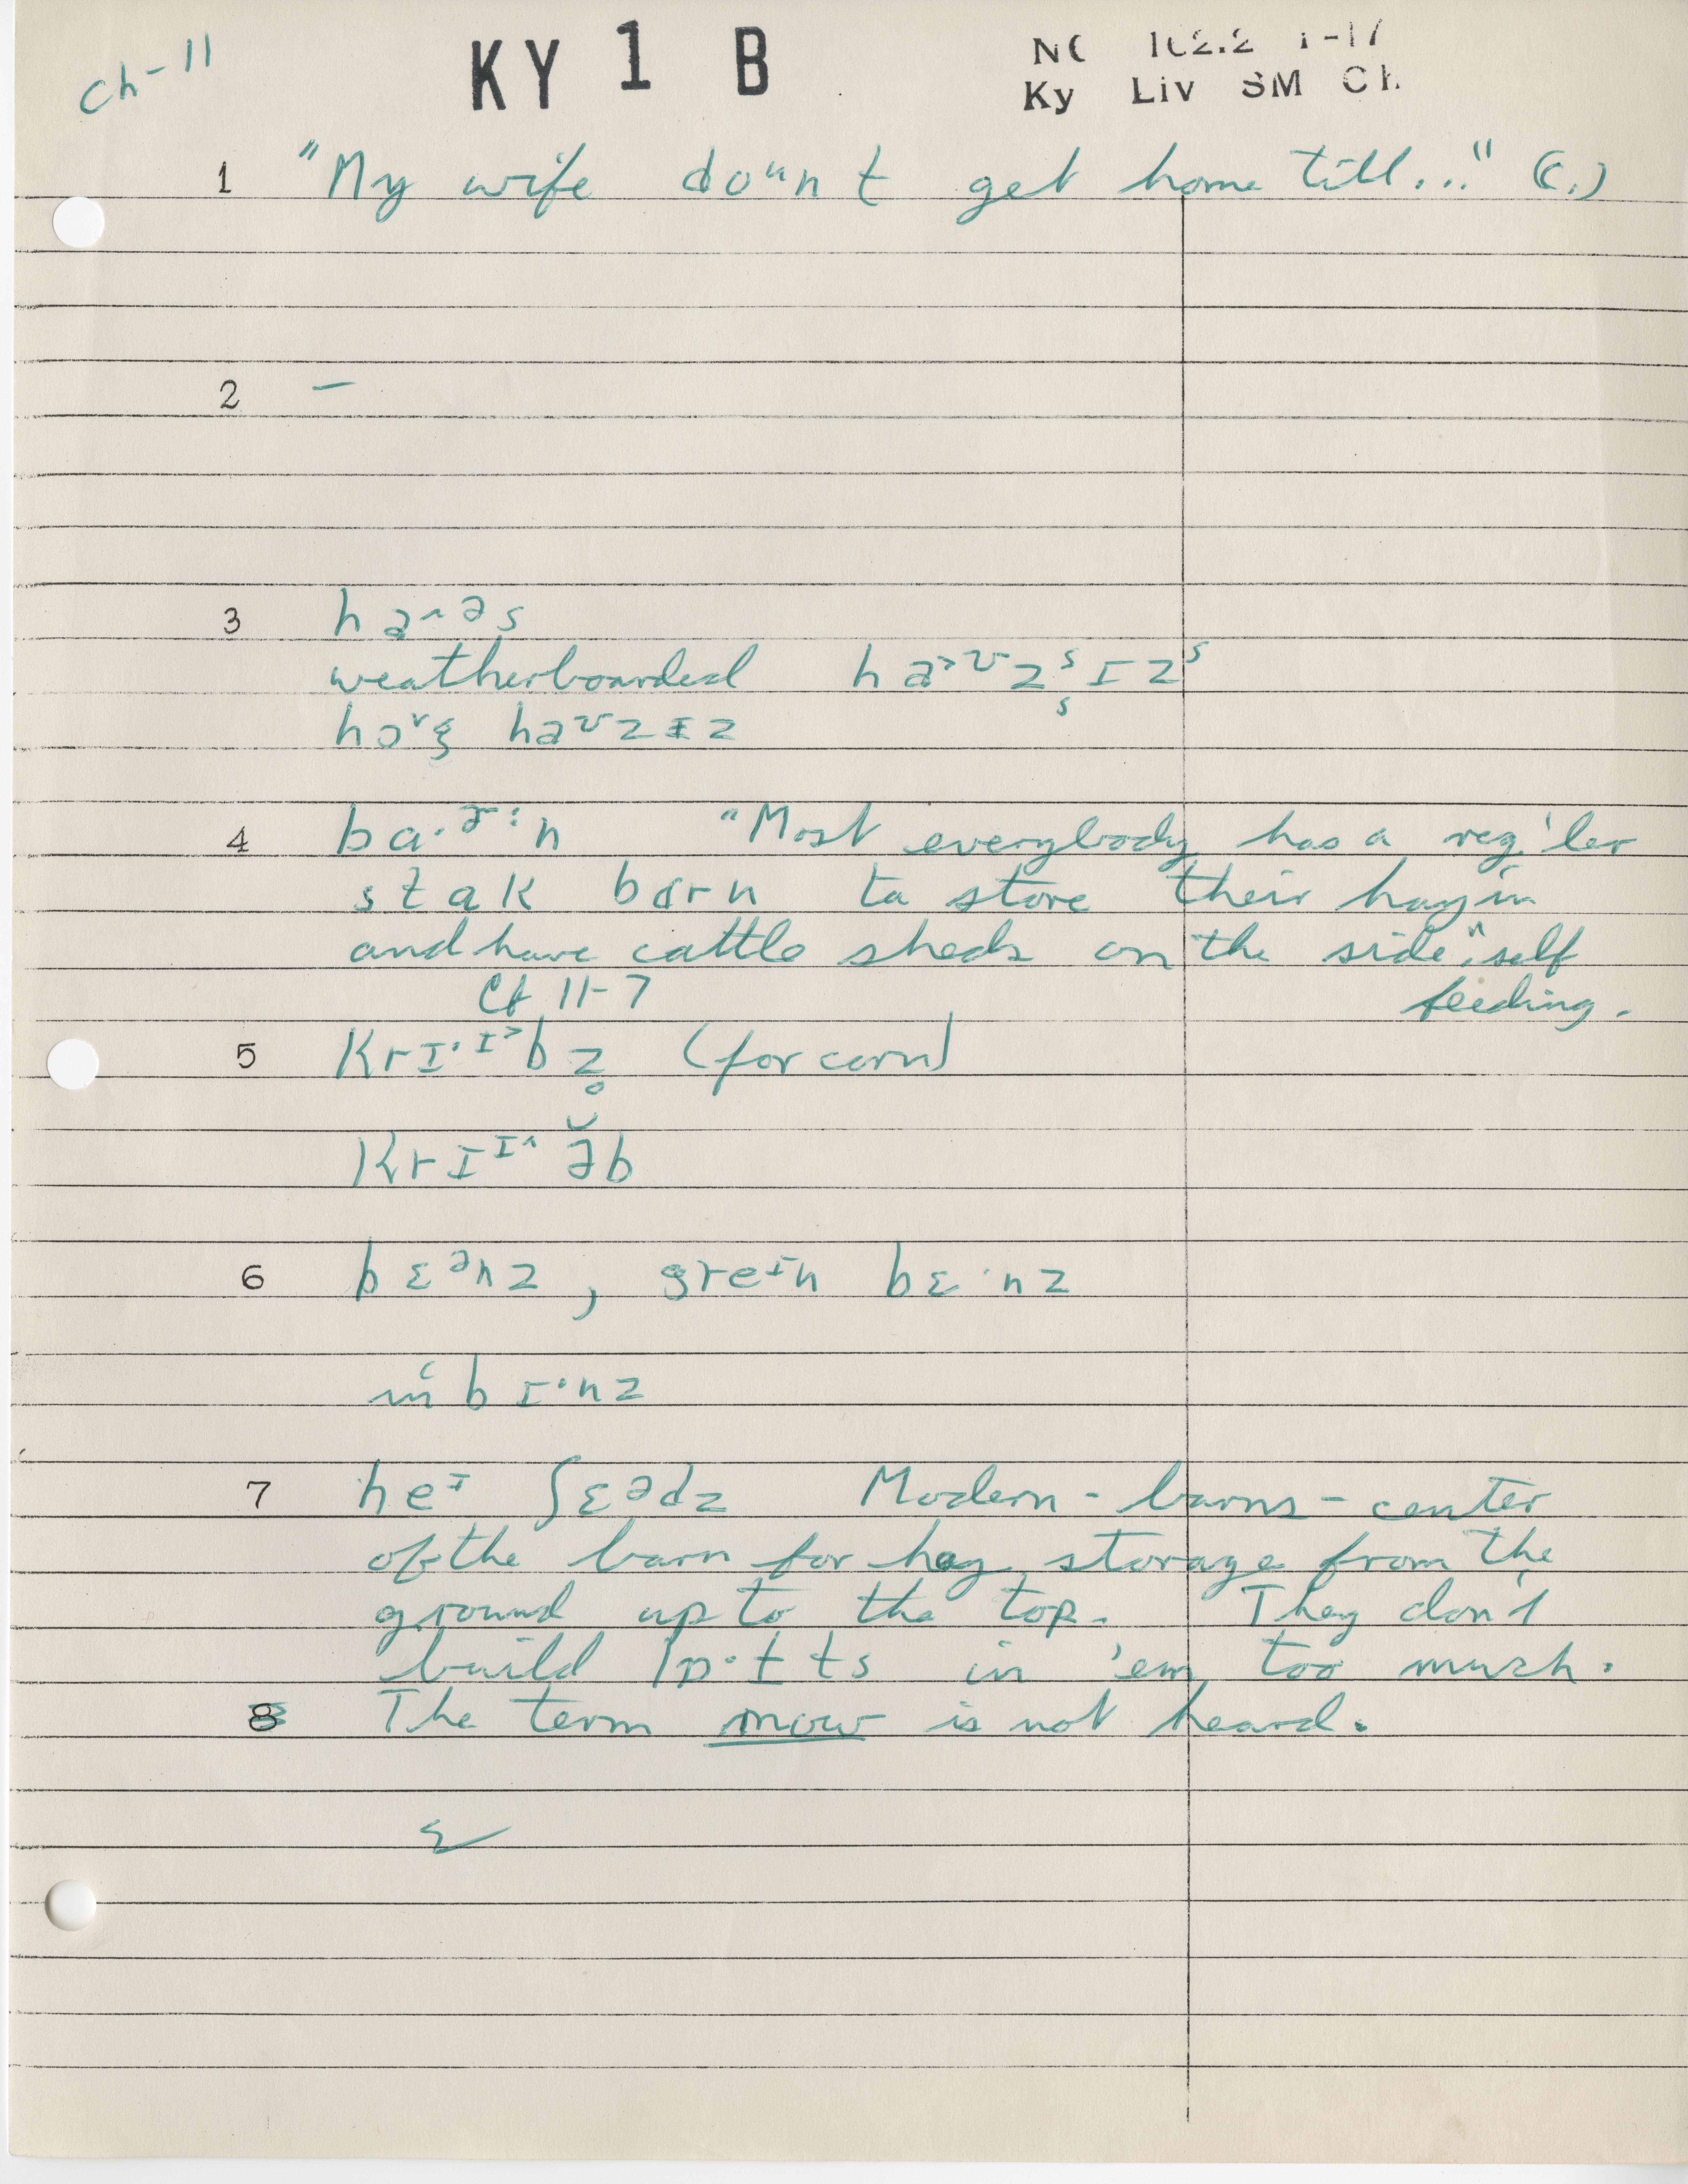 Ch-11
KY 1 B
Ky Liv SM Ch
1 "My wife doᵘnt get home till..." (c.)
2 –
3 haᶺᵊs
weatherboarded
haᶷzɪz
4 "Most everybody has a reg'ler
stak barn to store their hay in
and have cattle sheds on the side", self
feeding.
Cf 11-7
5 krɪ·ɪ˃bz̥ (for corn)
krɪɪ˄ə̆b
6 bɛᵊnz, greᶦn bɛ·nz
in bɪ·nz
7 heᶦ ʃɛᵊdz Modern - barns - center
of the barn for hay storage from the
ground up to the top. They don't
build lɒ·ft ts in 'em too much.
8 The term mow is not heard.